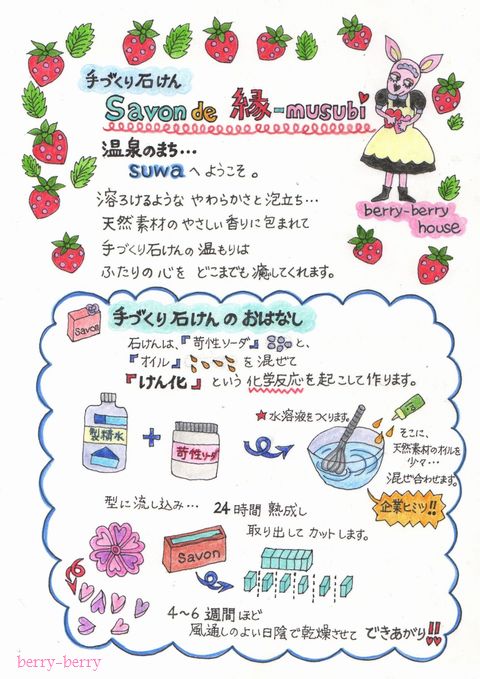 手づくり石けん
Savon de 縁-musubi
温泉のまち…
suwaへようこそ。
溶ろけるような やわらかさと泡立ち…
天然素材の やさしい香りに包まれて
手づくり石けんの温もりは
ふたりの心を どこまでも癒してくれます。
berry-berry
house
Savon
手づくり石けんの おはなし
石けんは、『苛性ソーダ』と、
『オイル』を混ぜて
『けん化』という化学反応を起こして作ります。
製精水
+
苛性ソーダ
★水溶液をつくります。
そこに、
天然素材のオイルを
少々…
混ぜ合わせます。
企業ヒミツ!!
型に流し込み… 24時間 熟成し
取り出して カットします。
Savon
4~6週間ほど
風通しのよい日陰で乾燥させて できあがり!!
berry-berry